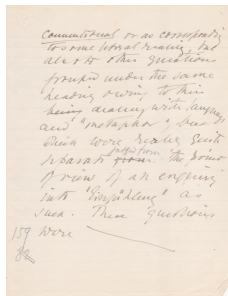 conventional or as corresponding
to some literal reality, but
also to other questions
grouped under the same
heading owing to their
being dealing with language
and "metaphor", but
which were really quite
separate from the point
of view of an enquiry
into "Einfühlung" as
such. These questions
159 were